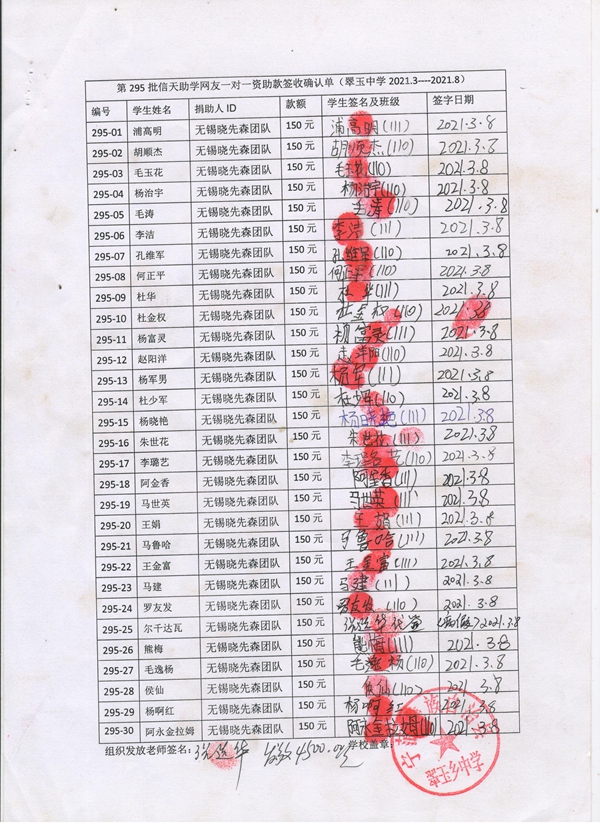 第 295 批信天助学网友一对一资助款签收确认单（翠玉中学 2021.3----2021.8）
编号 学生姓名 捐助人 ID 款额 学生签名及班级 签字日期
295-01 浦高明 无锡晓先森团队 150 元 浦高明(111) 2021.3.8
295-02 胡顺杰 无锡晓先森团队 150 元 胡顺杰(110) 2021.3.8
295-03 毛玉花 无锡晓先森团队 150 元 毛玉花(110) 2021.3.8
295-04 杨治宇 无锡晓先森团队 150 元 杨治宇(110) 2021.3.8
295-05 毛涛 无锡晓先森团队 150 元 毛涛(110) 2021.3.8
295-06 李洁 无锡晓先森团队 150 元 李洁(111) 2021.3.8
295-07 孔维军 无锡晓先森团队 150 元 孔维军(110) 2021.3.8
295-08 何正平 无锡晓先森团队 150 元 何正平(110) 2021.3.8
295-09 杜华 无锡晓先森团队 150 元 杜华(111) 2021.3.8
295-10 杜金权 无锡晓先森团队 150 元 杜金权(110) 2021.3.8
295-11 杨富灵 无锡晓先森团队 150 元 杨富灵(111) 2021.3.8
295-12 赵阳洋 无锡晓先森团队 150 元 (110) 2021.3.8
295-13 杨军男 无锡晓先森团队 150 元 杨军(111) 2021.3.8
295-14 杜少军 无锡晓先森团队 150 元 杜少军(110) 2021.3.8
295-15 杨晓艳 无锡晓先森团队 150 元 杨晓艳(111) 2021.3.8
295-16 朱世花 无锡晓先森团队 150 元 朱世花(111) 2021.3.8
295-17 李璐艺 无锡晓先森团队 150 元 李璐艺(110) 2021.3.8
295-18 阿金香 无锡晓先森团队 150 元 阿金香(111) 2021.3.8
295-19 马世英 无锡晓先森团队 150 元 马世英(111) 2021.3.8
295-20 王娟 无锡晓先森团队 150 元 王娟(111) 2021.3.8
295-21 马鲁哈 无锡晓先森团队 150 元 马鲁哈(111) 2021.3.8
295-22 王金富 无锡晓先森团队 150 元 王金富(111) 2021.3.8
295-23 马建 无锡晓先森团队 150 元 马建(111) 2021.3.8
295-24 罗友发 无锡晓先森团队 150 元 罗友发(110) 2021.3.8
295-25 尔千达瓦 无锡晓先森团队 150 元 2021.3.8
295-26 熊梅 无锡晓先森团队 150 元 熊梅(111) 2021.3.8
295-27 毛逸杨 无锡晓先森团队 150 元 毛逸杨(110) 2021.3.8
295-28 侯仙 无锡晓先森团队 150 元 侯仙(110) 2021.3.8
295-29 杨啊红 无锡晓先森团队 150 元 杨啊红(111) 2021.3.8
295-30 阿永金拉姆 无锡晓先森团队 150 元 阿永金拉姆(110) 2021.3.8
组织发放老师签名： 4500.00元 学校盖章：
翠玉乡中学